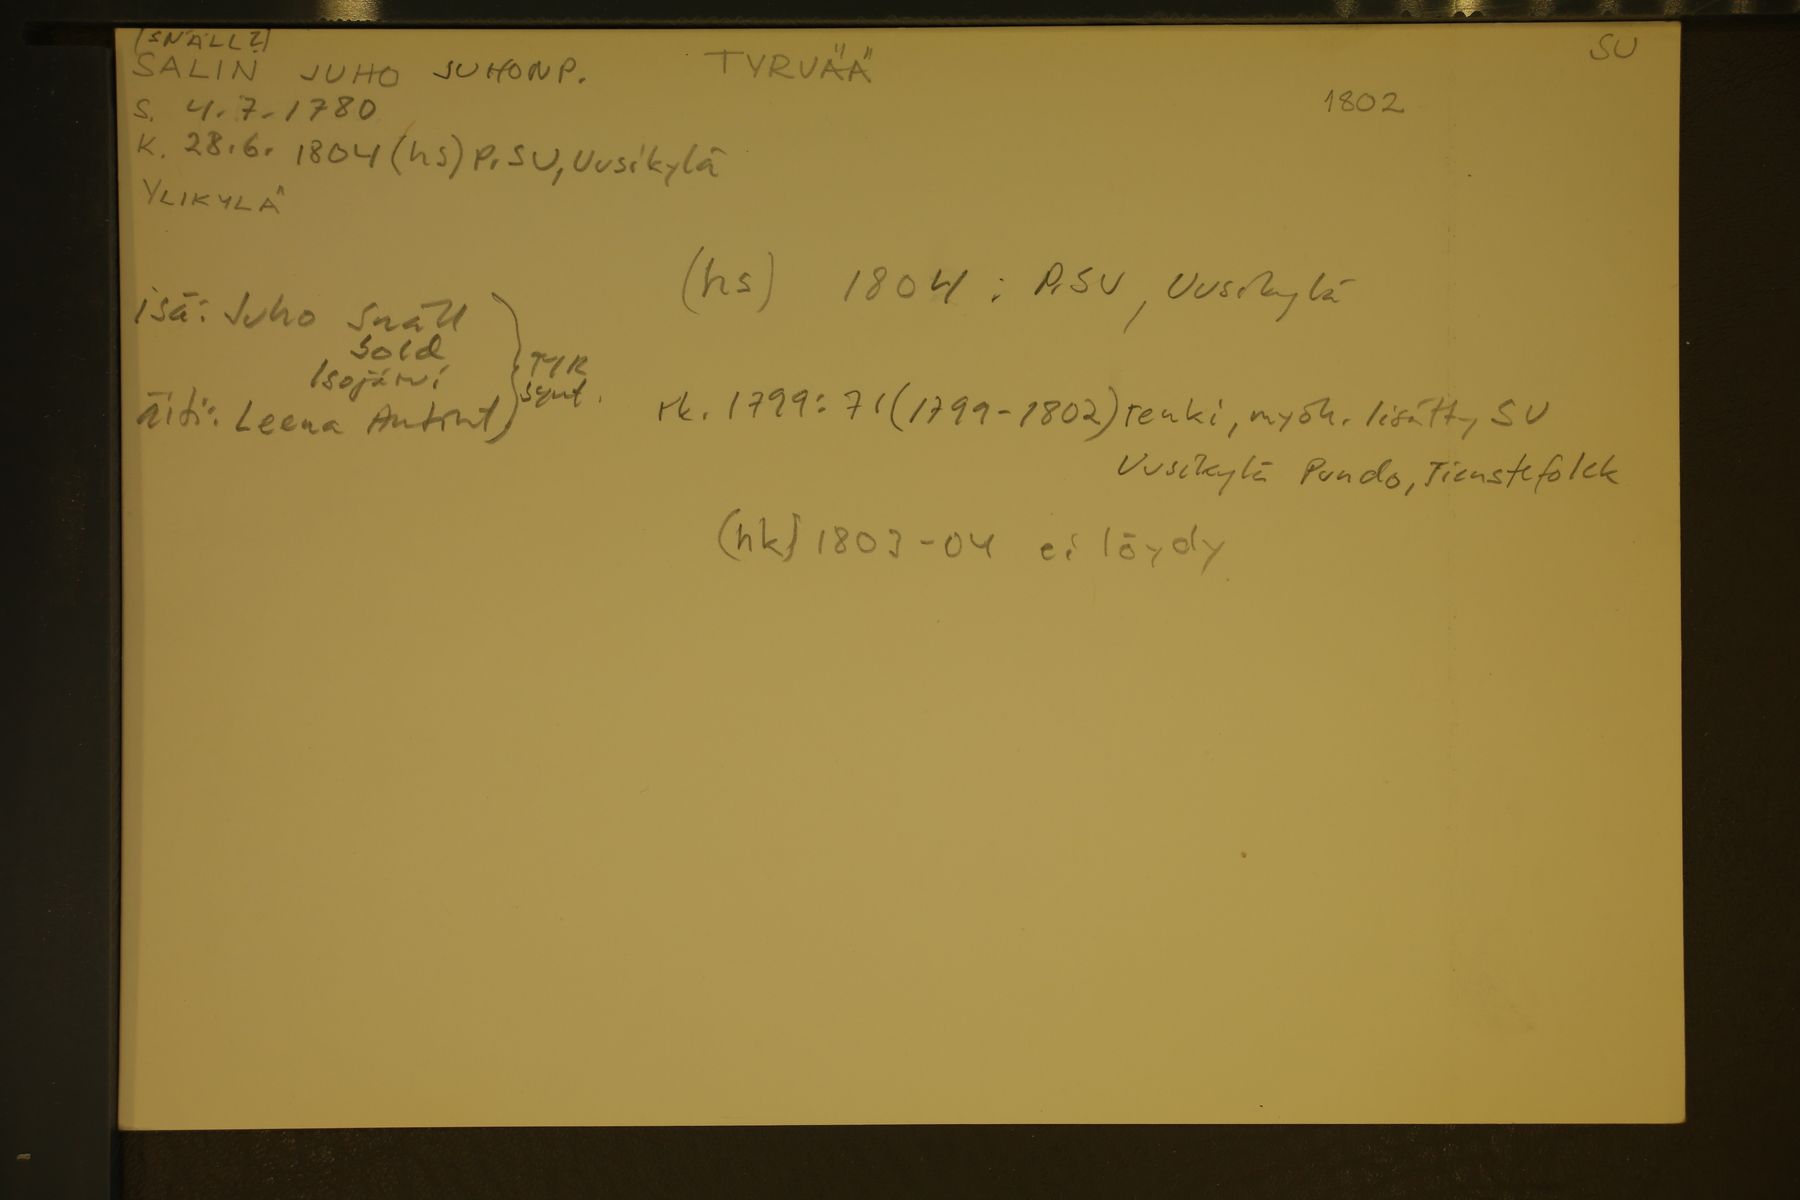 (SNÄLL?)
SALIN JUHO JUHONP. TYRVÄÄ SU
S. 4.7.1780 1802
K. 28.6. 1804 (hs) P.SU, Uusikylä
YLIKYLÄ
(hs) 1804: P.SU, Uusikylä
isä: Juho Snäll
Sold
Isojärvi
TYR
synt.
äiti: Leena Antint
rk. 1799: 71 (1799-1802) renki, myöh. lisätty SU
Uusikylä Pundo, Tienstefolck
(hk) 1803-04 ei löydy